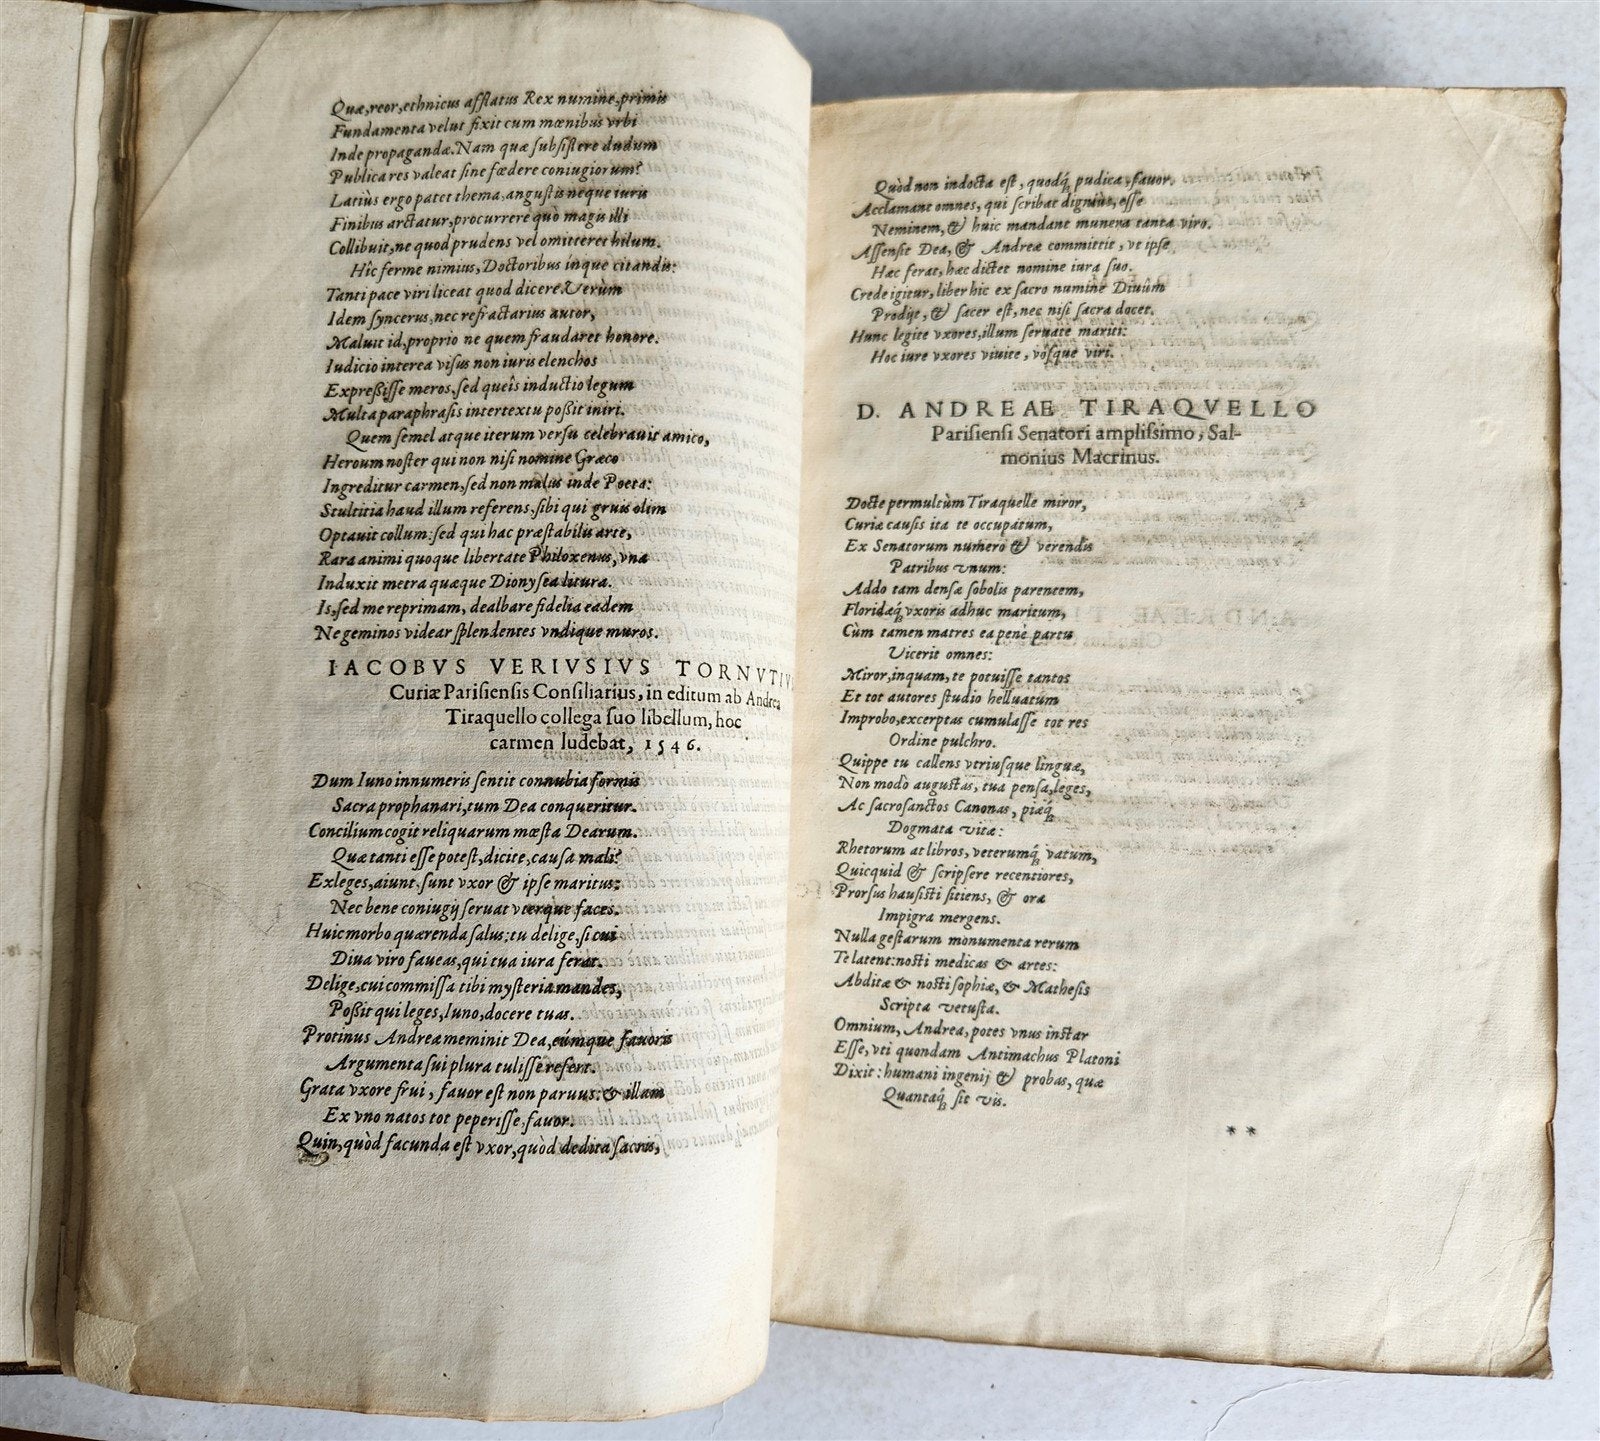 Quæ, reor, ethnicus afflatus Rex numine, primis
Fundamenta velut fixit cum mœnibus vrbi
Inde propagandæ. Nam quæ subsistere dudum
Publica res valeat sine fœdere coniugiorum?
Latiùs ergo patet thema, angustis neque iuris
Finibus arctatur, procurrere quò magis illi
Collibuit, ne quod prudens vel omitteret hilum.
Hîc ferme nimius, Doctoribus ínque citandis:
Tanti pace viri liceat quod dicere. Verùm
Idem syncerus, nec refractarius autor,
Maluit id, proprio ne quem fraudaret honore.
Iudicio interea visus non iuris elenchos
Expreßisse meros, sed queîs inductio legum
Multa paraphrasis intertextu poßit iniri.
Quem semel atque iterum versu celebrauit amico,
Heroum noster qui non nisi nomine Græco
Ingreditur carmen, sed non malus inde Poeta:
Stultitia haud illum referens, sibi qui gruis olim
Optauit collum: sed qui hac præstabilis arte,
Rara animi quoque libertate Philoxenus, vna
Induxit metra quæque Dionysea litura.
Is, sed me reprimam, dealbare fidelia eadem
Ne geminos videar splendentes vndique muros.
IACOBVS VERIVSIVS TORNVTIV
Curiæ Parisiensis Consiliarius, in editum ab Andrea
Tiraquello collega suo libellum, hoc
carmen ludebat, 1546.
Dum Iuno innumeris sentit connubia formis
Sacra prophanari, tum Dea conqueritur.
Concilium cogit reliquarum mœsta Dearum.
Quæ tanti esse potest, dicite, causa mali?
Exleges, aiunt, sunt vxor & ipse maritus:
Nec bene coniugij seruat vterque faces.
Huic morbo quærenda salus: tu delige, si cui
Diua viro faueas, qui tua iura ferat.
Delige, cui commissa tibi mysteria mandes,
Poßit qui leges, Iuno, docere tuas.
Protinus Andreæ meminit Dea, eúmque fauoris
Argumenta sui plura tulisse refert.
Grata vxore frui, fauor est non paruus: & illam
Ex vno natos tot peperisse, fauor.
Quin, quòd facunda est vxor, quòd dedita sacris,
Quòd non indocta est, quodq́ pudica, fauor,
Acclamant omnes, qui scribat digniùs, esse
Neminem, & huic mandant munera tanta viro.
Assensit Dea, & Andreæ committit, vt ipse
Hæc ferat, hæc dictet nomine iura suo.
Crede igitur, liber hic ex sacro numine Diuûm
Prodijt, & sacer est, nec nisi sacra docet.
Hunc legite vxores, illum seruate mariti:
Hoc iure vxores viuite, vósque viri.
D. ANDREAE TIRAQVELLO
Parisiensi Senatori amplissimo, Sal-
monius Macrinus.
Docte permultùm Tiraquelle miror,
Curiæ causis ita te occupatum,
Ex Senatorum numero & verendis
Patribus vnum:
Addo tam densæ sobolis parentem,
Floridæq́ vxoris adhuc maritum,
Cùm tamen matres ea penè partu
Vicerit omnes:
Miror, inquam, te potuisse tantos
Et tot autores studio helluatum
Improbo, excerptas cumulasse tot res
Ordine pulchro.
Quippe tu callens vtriusque linguæ,
Non modò augustas, tua pensa, leges,
Ac sacrosanctos Canonas, piæq́
Dogmata vitæ:
Rhetorum at libros, veterumq́ vatum,
Quicquid & scripsere recentiores,
Prorsus hausisti sitiens, & ora
Impigra mergens.
Nulla gestarum monumenta rerum
Te latent: nosti medicas & artes:
Abditæ & nosti sophiæ, & Mathesis
Scripta vetusta.
Omnium, Andrea, potes vnus instar
Esse, vti quondam Antimachus Platoni
Dixit: humani ingenij & probas, quæ
Quantaq́ sit vis.
* *